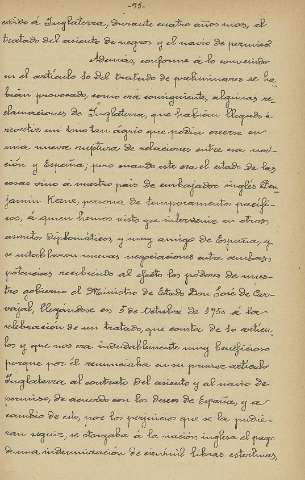 -55-
cedido á Inglaterra, durante cuatro años mas, el
tratado del asiento de negros y el navio de permiso
Ademas, conforme á lo convenido
en el articulo 16 del tratado de preliminares se ha-
bian provocado como era consiguiente, algunas re-
clamaciones de Inglaterra, que habian llegado á
revestir un tono tan agrio que podia creerse en
una nueva ruptura de relaciones entre esa na-
ción y España; pero cuando este era el estado de las
cosas vino a nuestro pais de embajador inglés Ben-
jamin Keene, persona de temperamento pacifi-
co, á quien hemos visto que intervenia en otros
asuntos diplomáticos y muy amigo de España, y
se entablaron nuevas negociaciones entre ambas
potencias recibiendo al efecto los poderes de nues-
tro gobierno el Ministro de Estado Don José de Car-
vajal, llegándose en 5 de Octubre de 1750 á la
celebración de un tratado, que consta de 10 articu-
los y que nos era indudablemente muy beneficioso
porque por él renunciaba en su primer articulo
Inglaterra al contrato del asiento y al navio de
permiso, de acuerdo con los deseos de España, y a
cambio de ello, por los perjuicios que se la pudie-
ran seguir, se otorgaba á la nación inglesa el pago
de una indemnización de cien mil libras esterlinas,